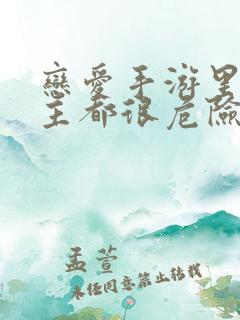 戀愛手游里
主都很危險
孟萱
未任同意禁止转载